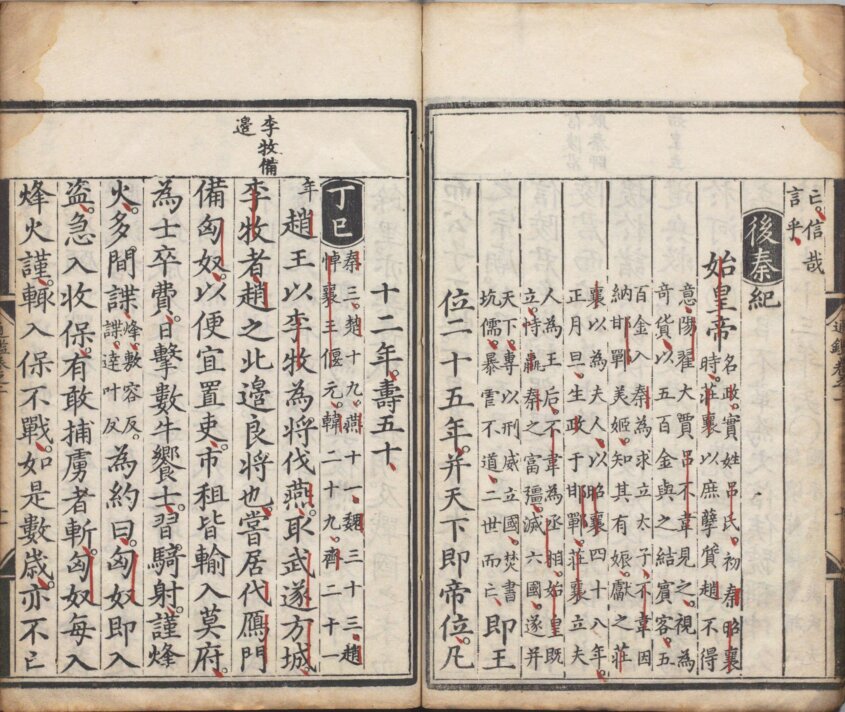 亡信哉
言乎
後秦紀
始皇帝
名政實姓呂氏初秦昭襄
時莊襄以庶孽質趙不得
意陽翟大賈呂不韋見之視為
奇貨以五百金與之結賓客五
百金入秦為求立太子不韋因
納邯鄲美姬知其有娠獻之莊
襄以為夫人以昭襄四十八年
正月旦生政于邯鄲莊襄立夫
人為王后不韋為丞相始皇既
立恃嬴秦之富彊滅六國遂并
天下專以刑威立國焚書
坑儒暴虐不道二世而亡
即王
位二十五年并天下即帝位凡
十二年壽五十
丁巳
秦三楚十九燕十一魏三十三趙
悼襄王偃元韓二十九齊二十一
年
趙王以李牧為將伐燕取武遂方城
李牧備
邊
李牧者趙之北邊良將也嘗居代鴈門
備匈奴以便宜置吏市租皆輸入莫府
為士卒費日擊數牛饗士習騎射謹烽
火多間諜
烽敷容反
諜達叶反
為約曰匈奴即入
盜急入收保有敢捕虜者斬匈奴每入
烽火謹輒入保不戰如是數歲亦不亡